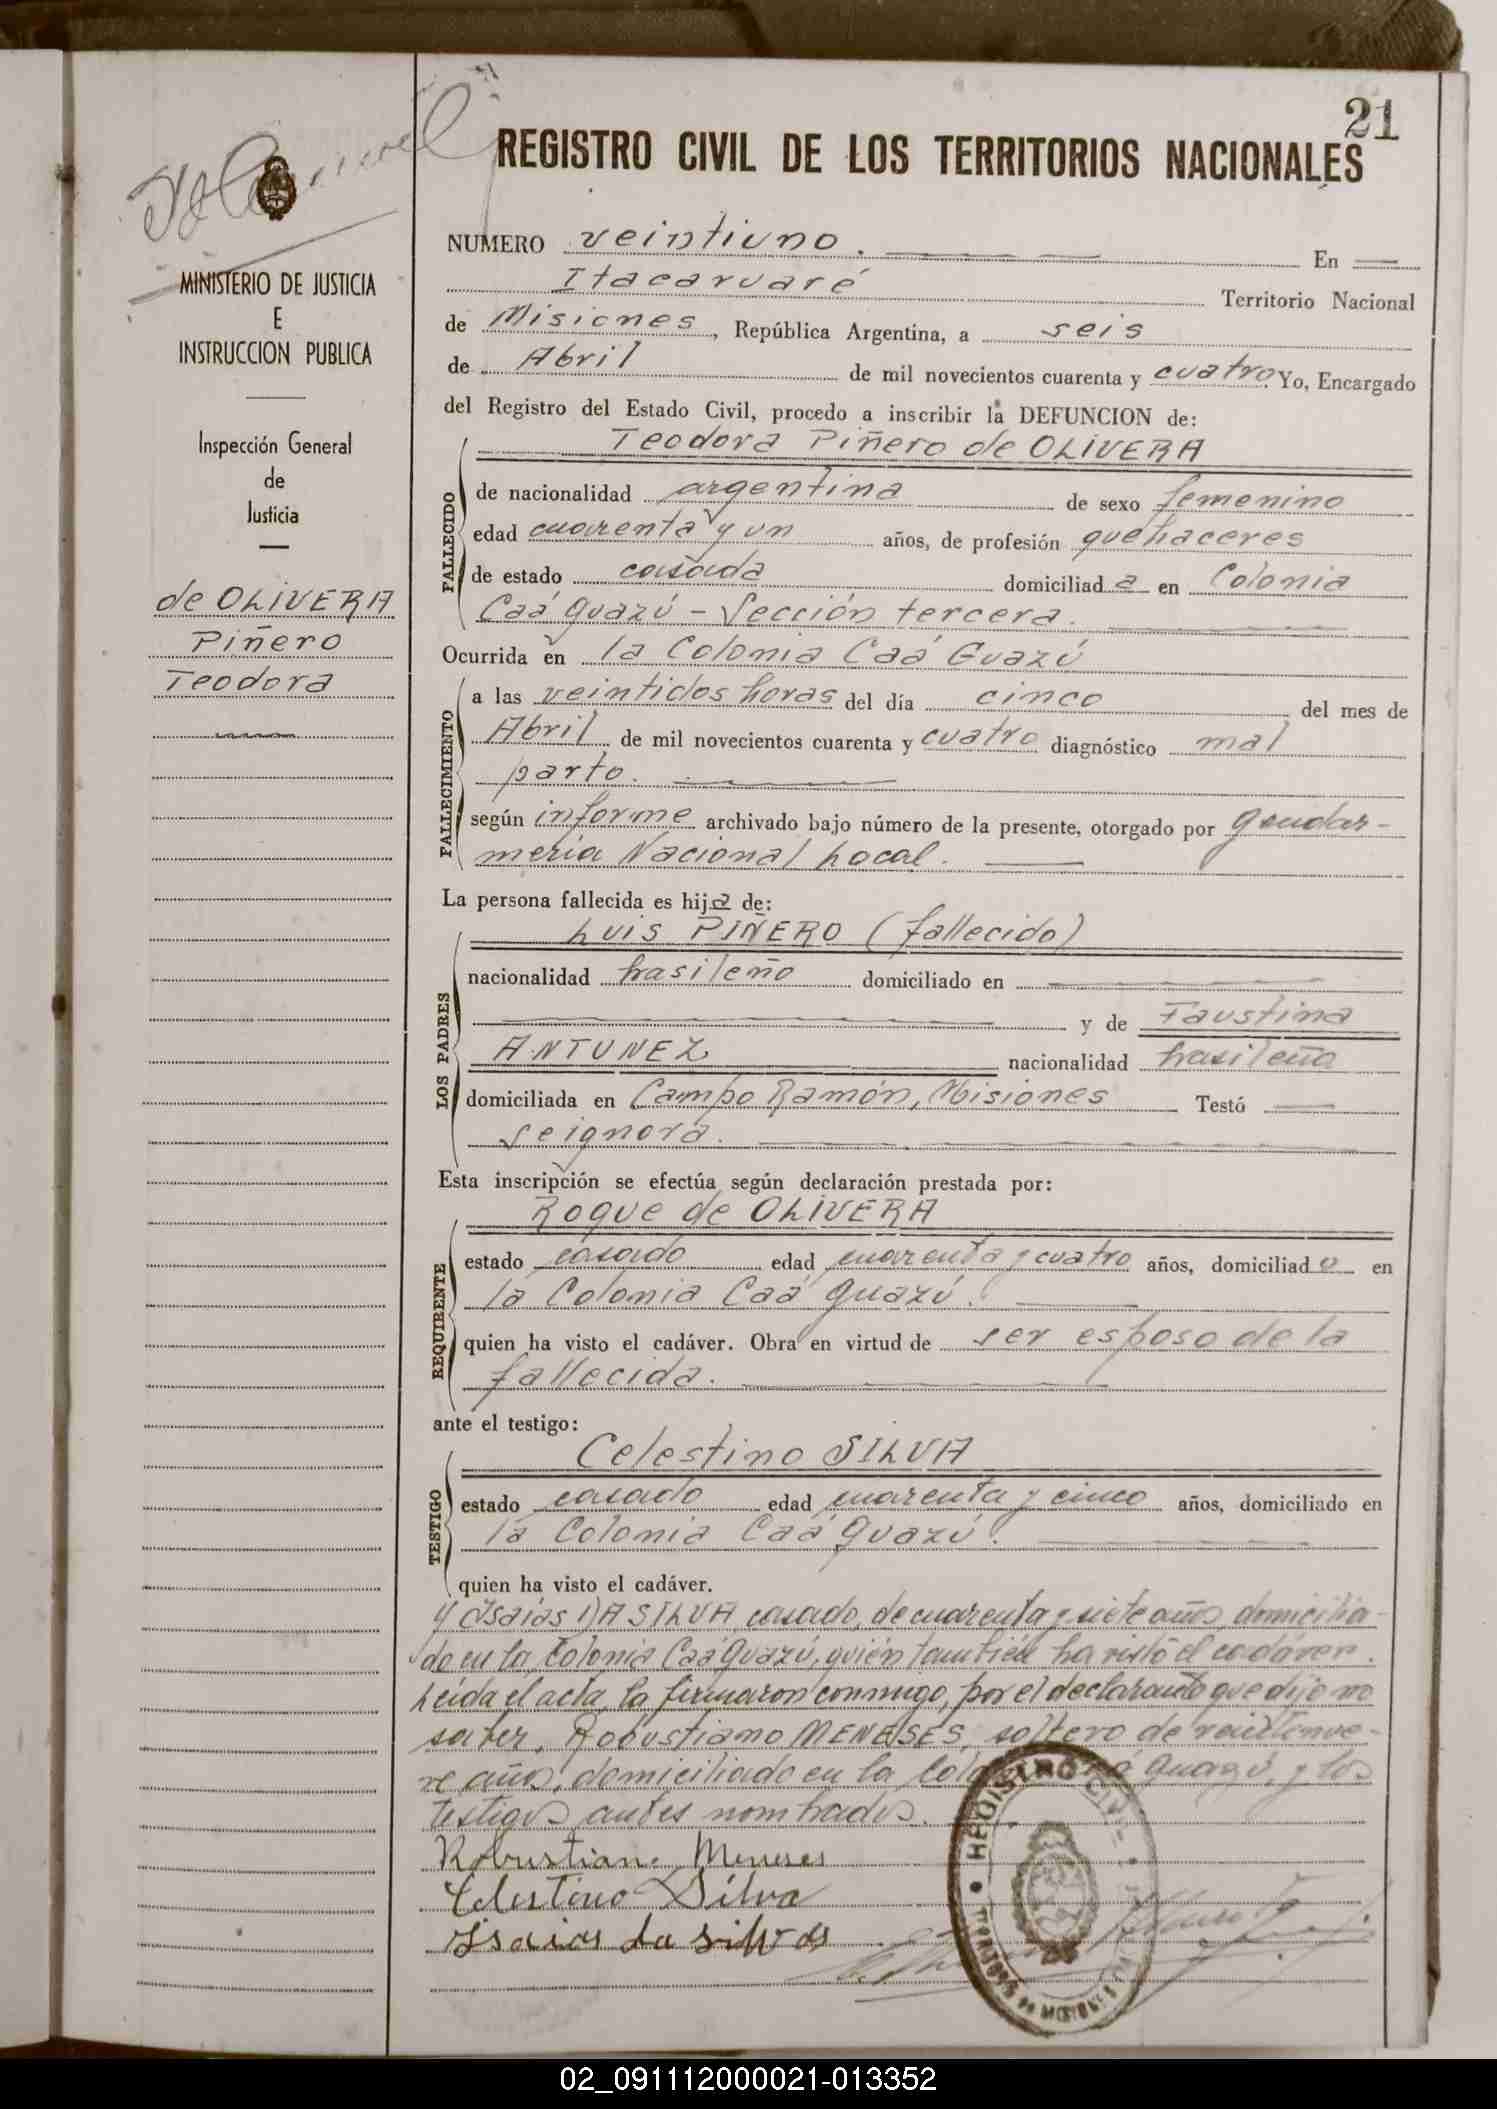 21
REGISTRO CIVIL DE LOS TERRITORIOS NACIONALES
MINISTERIO DE JUSTICIA
E
INSTRUCCION PUBLICA
Inspección General
de
Justicia
de OLIVERA
Piñero
Teodora
NUMERO veintiuno. En
Itacaruaré Territorio Nacional
de Misiones, República Argentina, a seis
de Abril de mil novecientos cuarenta y cuatro. Yo, Encargado
del Registro del Estado Civil, procedo a inscribir la DEFUNCION de:
Teodora Piñero de OLIVERA
FALLECIDO
de nacionalidad argentina de sexo femenino
edad cuarenta y un años, de profesión quehaceres
de estado casada domiciliada en Colonia
Caá Guazú - Sección tercera.
Ocurrida en la Colonia Caá Guazú
FALLECIMIENTO
a las veintidos horas del día cinco del mes de
Abril de mil novecientos cuarenta y cuatro diagnóstico mal
parto.
según informe archivado bajo número de la presente, otorgado por Gendar-
meria Nacional Local.
La persona fallecida es hija de:
Luis PIÑERO (fallecido)
LOS PADRES
nacionalidad brasileño domiciliado en
y de Faustina
ANTUNEZ nacionalidad brasileña
domiciliada en Campo Ramón, Misiones Testó
se ignora.
Esta inscripción se efectúa según declaración prestada por:
Roque de OLIVERA
REQUIRENTE
estado casado edad cuarenta y cuatro años, domiciliado en
la Colonia Caá Guazú.
quien ha visto el cadáver. Obra en virtud de ser esposo de la
fallecida.
ante el testigo:
Celestino SILVA
TESTIGO
estado casado edad cuarenta y cinco años, domiciliado en
la Colonia Caá Guazú.
quien ha visto el cadáver.
y Isaias DA SILVA, casado, de cuarenta y siete años, domicilia-
do en la Colonia Caá Guazú, quién también ha visto el cadáver.
Leida el acta, la firmaron conmigo, por el declarante que dijo no
saber, Robustiano MENESES, soltero de veintinue-
ve años, domiciliado en la Colonia Caá Guazú, y los
testigos antes nombrados.
Robustiano Meneses
Celestino Silva
Isaias da silva
REGISTRO CIVIL
02_091112000021-013352